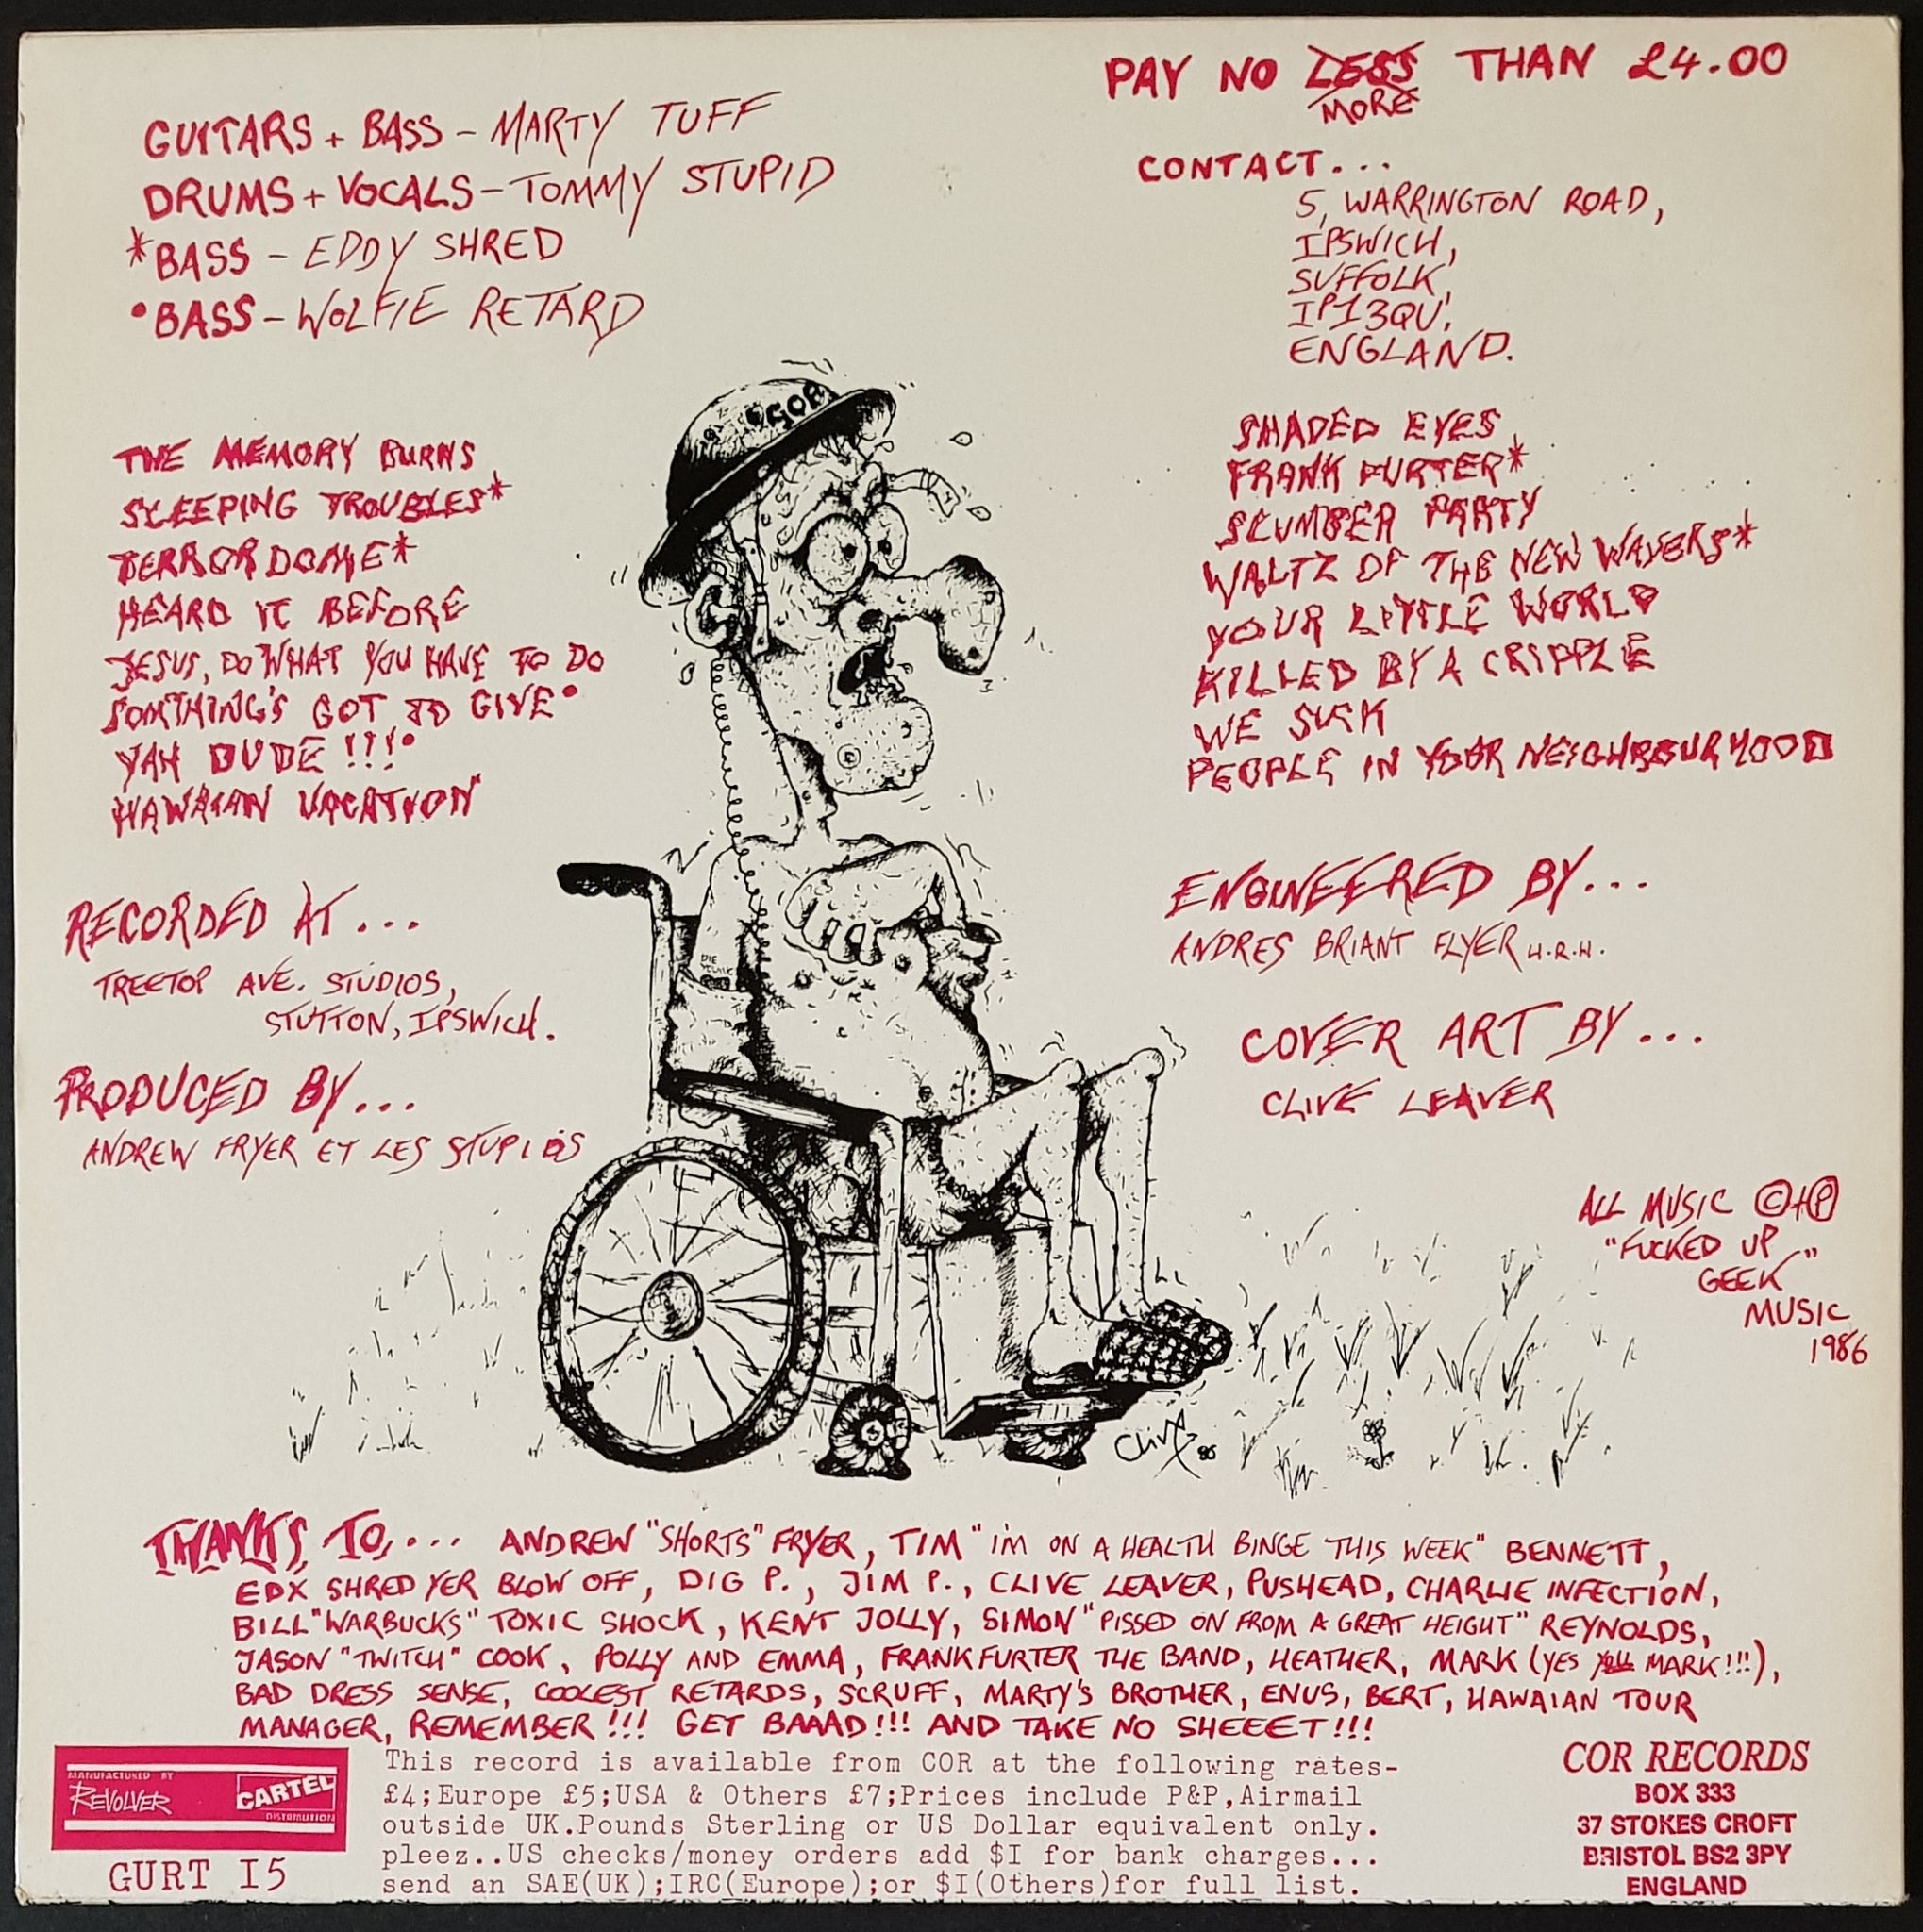 PAY NO LESS THAN £4.00
MORE
GUITARS + BASS - MARTY TUFF
DRUMS + VOCALS - TOMMY STUPID
*BASS - EDDY SHRED
•BASS - WOLFIE RETARD
CONTACT...
5, WARRINGTON ROAD,
IPSWICH,
SUFFOLK,
IP1 3QU.
ENGLAND.
THE MEMORY BURNS
SLEEPING TROUBLES*
TERRORDOME*
HEARD IT BEFORE
JESUS, DO WHAT YOU HAVE TO DO
SOMTHING'S GOT TO GIVE•
YAH DUDE!!!•
HAWAIAN VACATION
SHADED EYES
FRANK FURTER*
SLUMBER PARTY
WALTZ OF THE NEW WAVERS*
YOUR LITTLE WORLD
KILLED BY A CRIPPLE
WE SUCK
PEOPLE IN YOUR NEIGHBOURHOOD
RECORDED AT...
TREETOP AVE. STUDIOS,
STUTTON, IPSWICH.
PRODUCED BY...
ANDREW FRYER ET LES STUPIDS
ENGINEERED BY...
ANDRES BRIANT FLYER H.R.H.
COVER ART BY...
CLIVE LEAVER
ALL MUSIC ©+℗
"FUCKED UP
GEEK"
MUSIC
1986
DIE
Clive 86
THANKS TO,... ANDREW "SHORTS" FRYER, TIM "I'M ON A HEALTH BINGE THIS WEEK" BENNETT,
EDX SHRED YER BLOW OFF, DIG P., JIM P., CLIVE LEAVER, PUSHEAD, CHARLIE INFECTION,
BILL "WARBUCKS" TOXIC SHOCK, KENT JOLLY, SIMON "PISSED ON FROM A GREAT HEIGHT" REYNOLDS,
JASON "TWITCH" COOK, POLLY AND EMMA, FRANKFURTER THE BAND, HEATHER, MARK (YES YOU MARK!!!),
BAD DRESS SENSE, COOLEST RETARDS, SCRUFF, MARTY'S BROTHER, ENUS, BERT, HAWAIAN TOUR
MANAGER, REMEMBER!!! GET BAAAD!!! AND TAKE NO SHEEET!!!
MANUFACTURED BY
REVOLVER
CARTEL
DISTRIBUTION
GURT I5
This record is available from COR at the following rates-
£4;Europe £5;USA & Others £7;Prices include P&P,Airmail
outside UK.Pounds Sterling or US Dollar equivalent only.
pleez..US checks/money orders add $I for bank charges...
send an SAE(UK);IRC(Europe);or $I(Others)for full list.
COR RECORDS
BOX 333
37 STOKES CROFT
BRISTOL BS2 3PY
ENGLAND